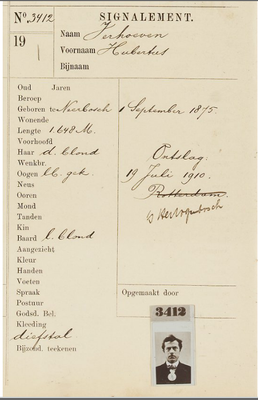 No. 3412
SIGNALEMENT.
19
Naam Verhoeven
Voornaam Hubertus
Bijnaam
Oud Jaren
Beroep
Geboren te Neerbosch 1 September 1875.
Wonende
Lengte 1.648 M.
Voorhoofd
Haar d. blond Ontslag
Wenkbr.
Oogen 19 Juli 1910.
Neus
Ooren Rotterdam
Mond s Hertogenbosch
Tanden
Kin
Baard l. blond
Aangezicht
Kleur
Handen
Voeten
Spraak
Postuur Opgemaakt door
Godsd. Bel.
Kleeding 3412
diefstal
Bijzond. teekenen